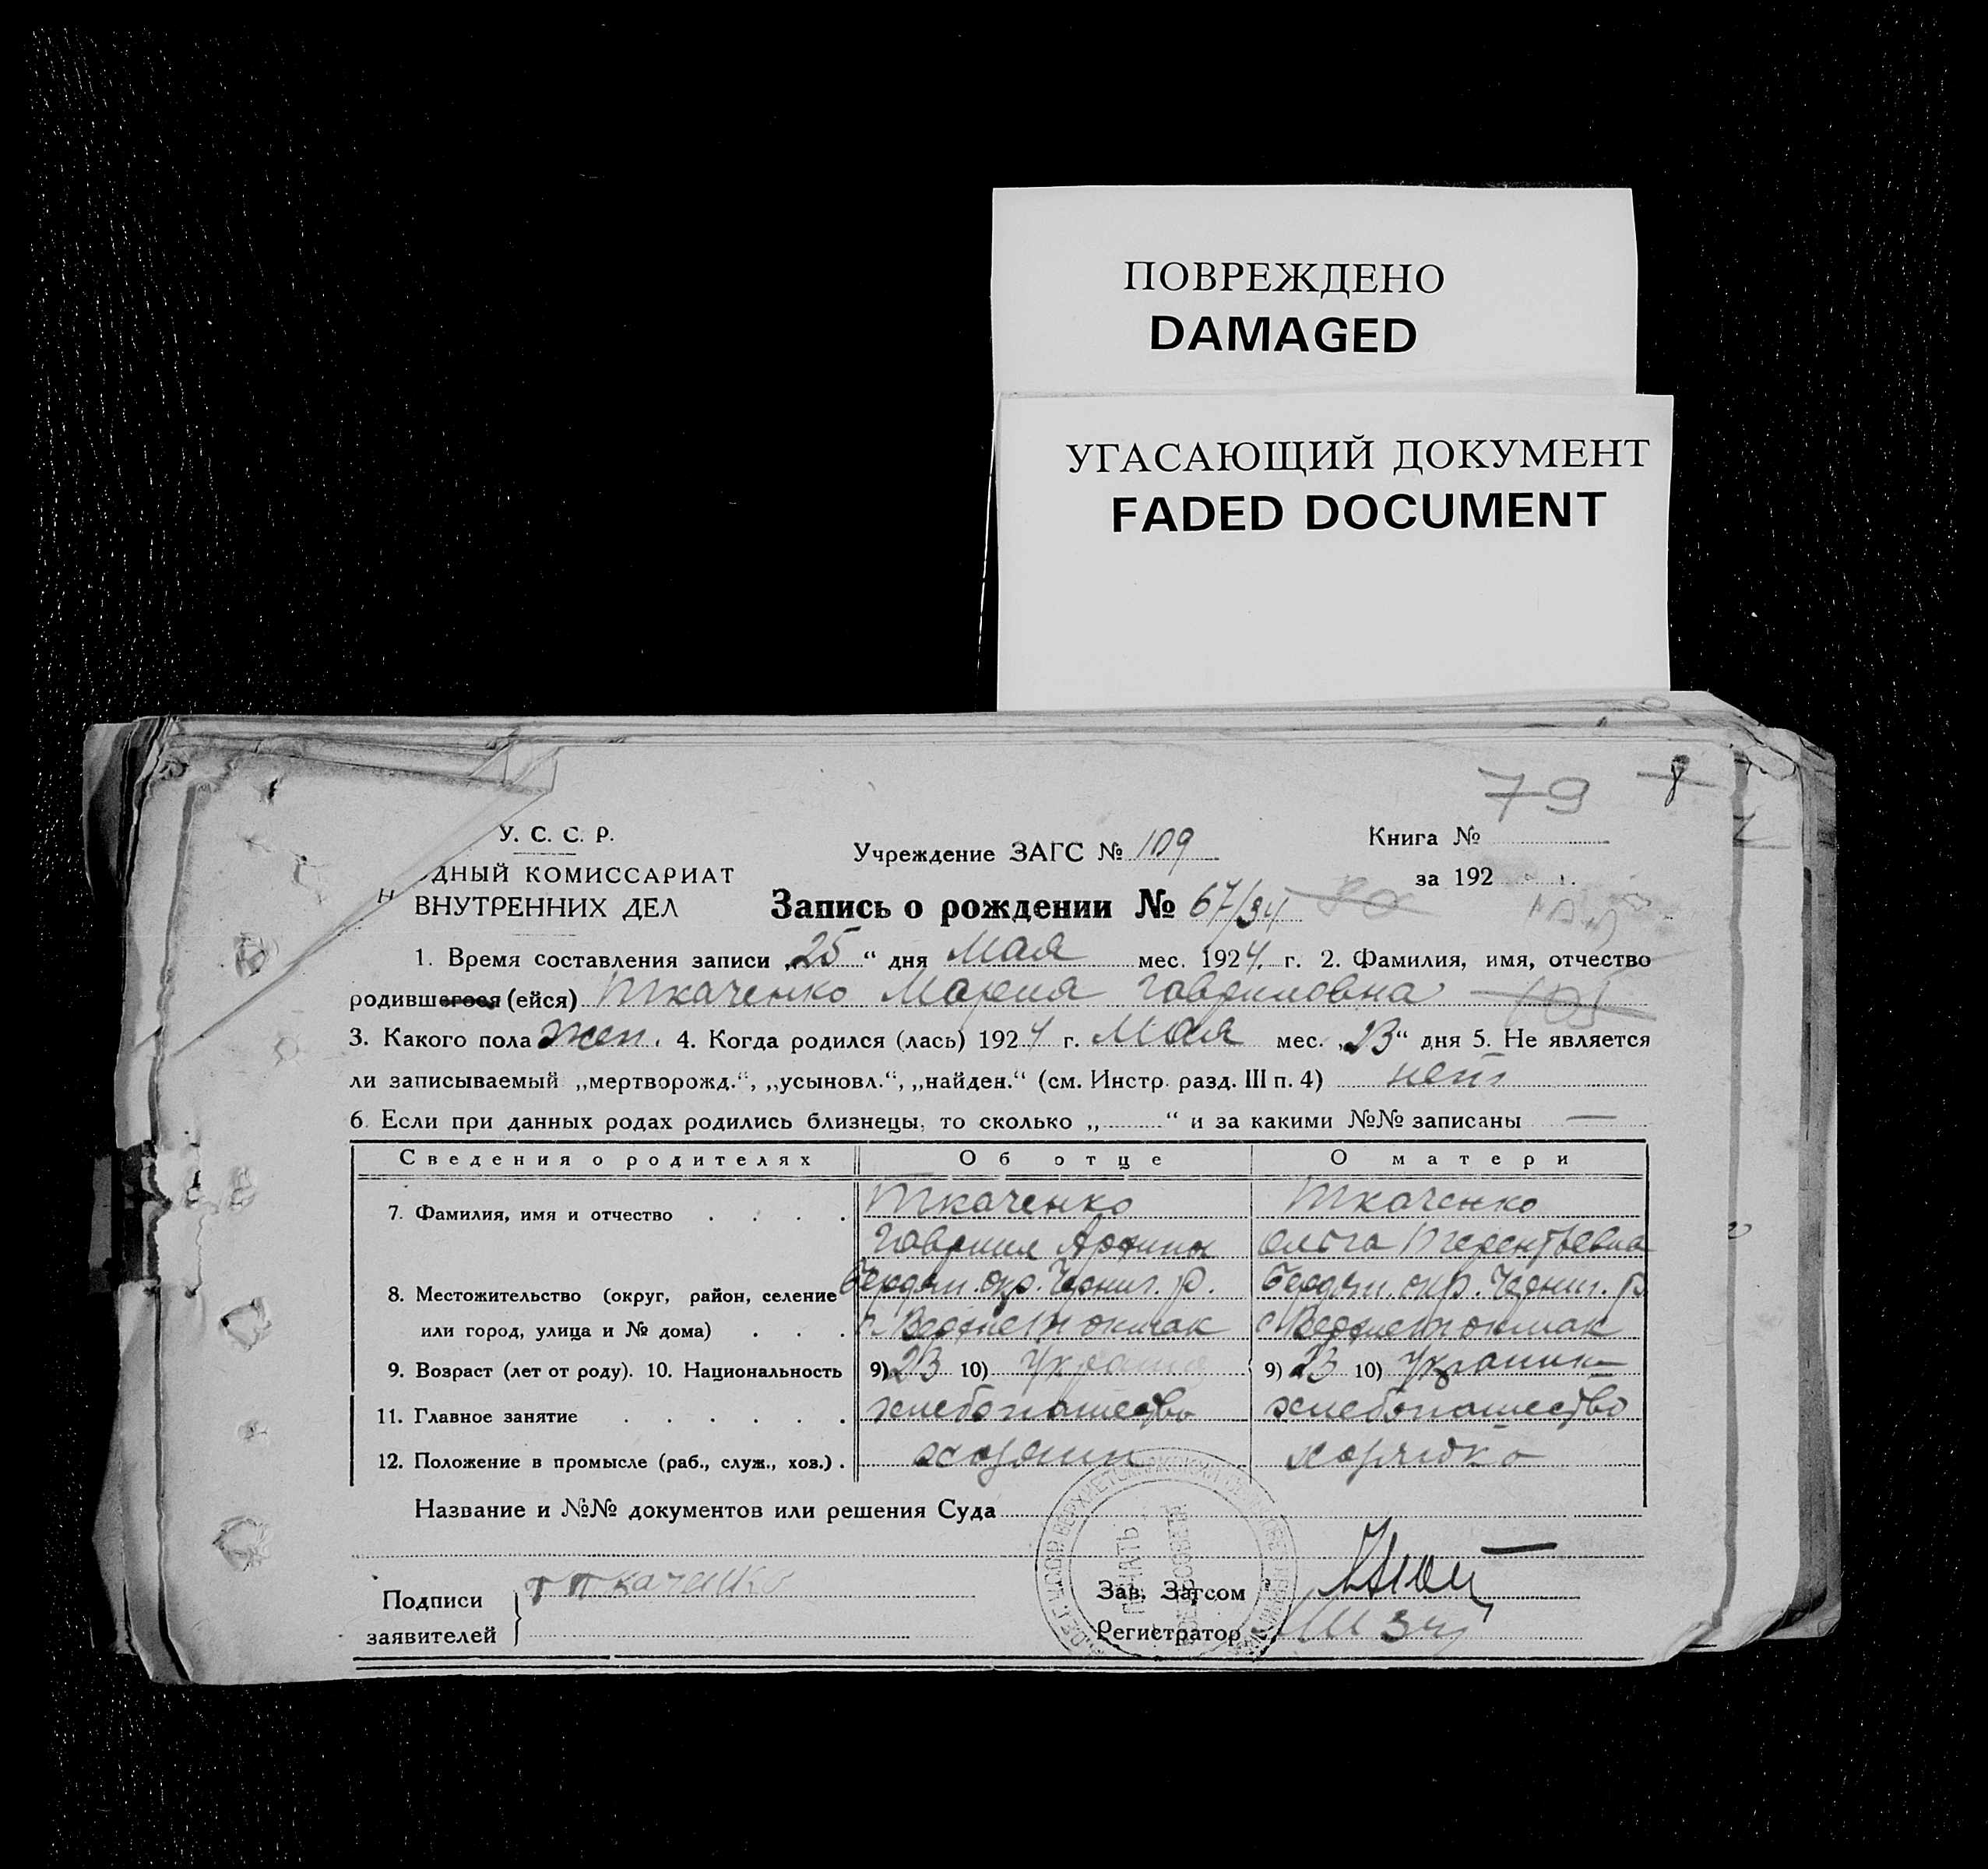 ПОВРЕЖДЕНО
DAMAGED
УГАСАЮЩИЙ ДОКУМЕНТ
FADED DOCUMENT
79
У. С. С. Р.
Учреждение ЗАГС № 109
Книга №
ДНЫЙ КОМИССАРИАТ
за 192
ВНУТРЕННИХ ДЕЛ
Запись о рождении № 67/34
1. Время составления записи „25“ дня Мая мес. 1924 г. 2. Фамилия, имя, отчество
родившегося (ейся) Ткаченко Мария Гавриловна
3. Какого пола жен. 4. Когда родился (лась) 1924 г. Мая мес. „23“ дня 5. Не является
ли записываемый „мертворожд.“, „усыновл.“, „найден.“ (см. Инстр. разд. III п. 4) нет
6. Если при данных родах родились близнецы, то сколько „ “ и за какими №№ записаны —
Сведения о родителях Об отце О матери
7. Фамилия, имя и отчество Ткаченко Ткаченко
Гаврил Ольга Терентьевна
8. Местожительство (округ, район, селение Бердян. окр. Черниг. р. Бердян. окр. Черниг. р.
или город, улица и № дома) с. Верхнетокмак с. Верхнетокмак
9. Возраст (лет от роду). 10. Национальность 9) 23 10) 9) 23 10)
11. Главное занятие хлебопашество хлебопашество
12. Положение в промысле (раб., служ., хоз.) хозяин хозяйка
Название и №№ документов или решения Суда
Подписи
заявителей
Ткаченко
Зав. Загсом
Регистратор
ПЕЧАТЬ